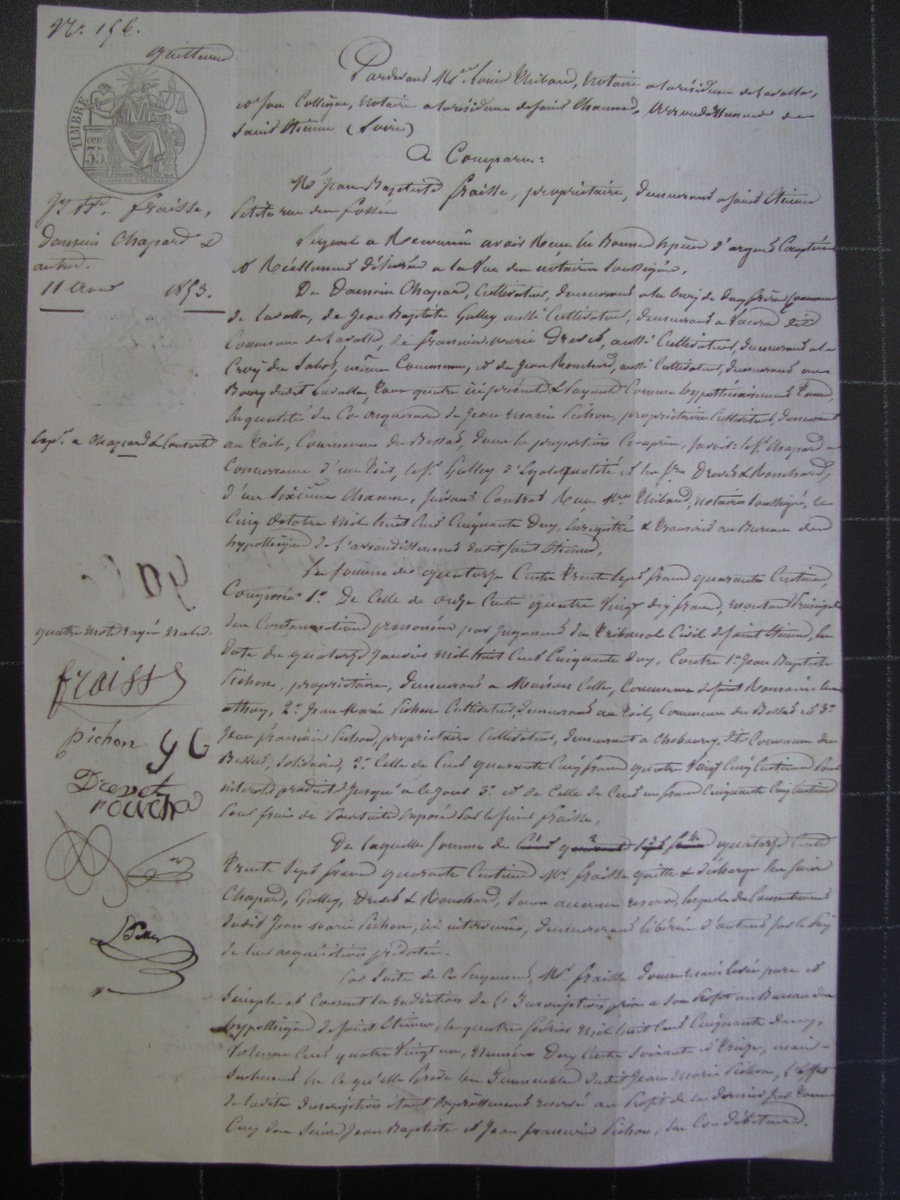 No. 156.
quittance
TIMBRE
35 cen
Jn Bte. fraisse,
Damien Chapard &
autres.
11 avril 1853.
Exp. a Chapard & Consorts
quatre mots rayés nuls.
fraisse
pichon
Drevet
Pardevant Me. Louis Thibaud, Notaire a la résidence de Lavalla,
et son Collègue, Notaire a la résidence de Saint Chamond, arrondissement de
Saint Etienne (Loire)
A Comparu:
Mr Jean Baptiste fraisse, propriétaire, demeurant a Saint Etienne
Petite rue des fossés
Lequel a Reconnu avoir Reçu en Bonnes Espèces d'argent Comptées
& Réellement délivrées a la Vue des notaires soussignés.
De Damien Chapard, Cultivateur, demeurant a la
de Lavalla, de Jean Baptiste Galley aussi Cultivateur, demeurant a
Commune de Lavalla, de françois marie Drevet, aussi Cultivateur, demeurant a la
Croix du Sabot, même Commune, et de Jean Ronchard, aussi Cultivateur, demeurant au
Bourg dudit Lavalla, Tous quatre ici présents & payant Comme hypothécairement Tenus,
En qualité de Co-acquéreurs de Jean Marie Pichon, propriétaire Cultivateur, demeurant
au Toil, Commune du Bessat, dans la proportion Ci-après, savoir: le Sr. Chapard a
Concurrence d'un tiers, le Sr. Galley d'Egale quotité et les Srs Drevet & Ronchard,
d'un sixième Chacun, suivant Contrat Reçu Me. Thibaud, notaire soussigné, le
Cinq octobre mil huit Cent Cinquante Deux, Enregistré & transcrit au Bureau des
hypothèques de l'arrondissement dudit Saint Etienne,
La somme de quatorze Cents trente sept francs quarante Centimes,
Composée 1o. De Celle de onze Cents quatre Vingt dix francs, montant Principal
des Condamnations prononcées par Jugement du Tribunal Civil de Saint Etienne, en
date du quatorze Janvier mil huit Cent Cinquante Deux, Contre 1o. Jean Baptiste
Pichon, propriétaire, demeurant a Commune de Saint Romain les
athaux, 2o. Jean Marie Pichon Cultivateur, demeurant au Toil, Commune du Bessat et 3o.
Jean françois Pichon, propriétaire Cultivateur, demeurant a Chobourey, dte Commune du
Bessat, Solidaires, 2o. Celle de Cent quarante Cinq francs quatre Vingt Cinq Centimes Pour
intérêts produits Jusqu'à ce jour 3o. et de Celle de Cent un francs Cinquante Cinq Centimes
Pour frais de Poursuites Exposés par le sieur fraisse,
De laquelle somme de quatorze Cents
trente sept francs quarante Centimes Mr. fraisse quitte & décharge les sieurs
Chapard, Galley, Drevet & Ronchard, sans aucune reserve, lesquels du Consentement
dudit Jean Marie Pichon, ici intervenu, demeureront libérés d'autant sur le Prix
de leurs acquisitions prédatées.
Par suite de Ce Payement, Mr fraisse donne mainlevée pure et
simple et Consent la radiation de l'Inscription prise a son Profit au Bureau des
hypothèques de Saint Etienne, le quatre février mil huit Cent Cinquante Deux,
Volume Cent quatre Vingt un, numéro Deux Cents Soixante et Treize, mais
seulement En Ce qu'elle Grève les Immeubles dudit Jean Marie Pichon, l'Effet
de ladite Inscription étant Expressément reservé au Profit de ce dernier
les sieurs Jean Baptiste et Jean françois Pichon, ses Co-débiteurs.